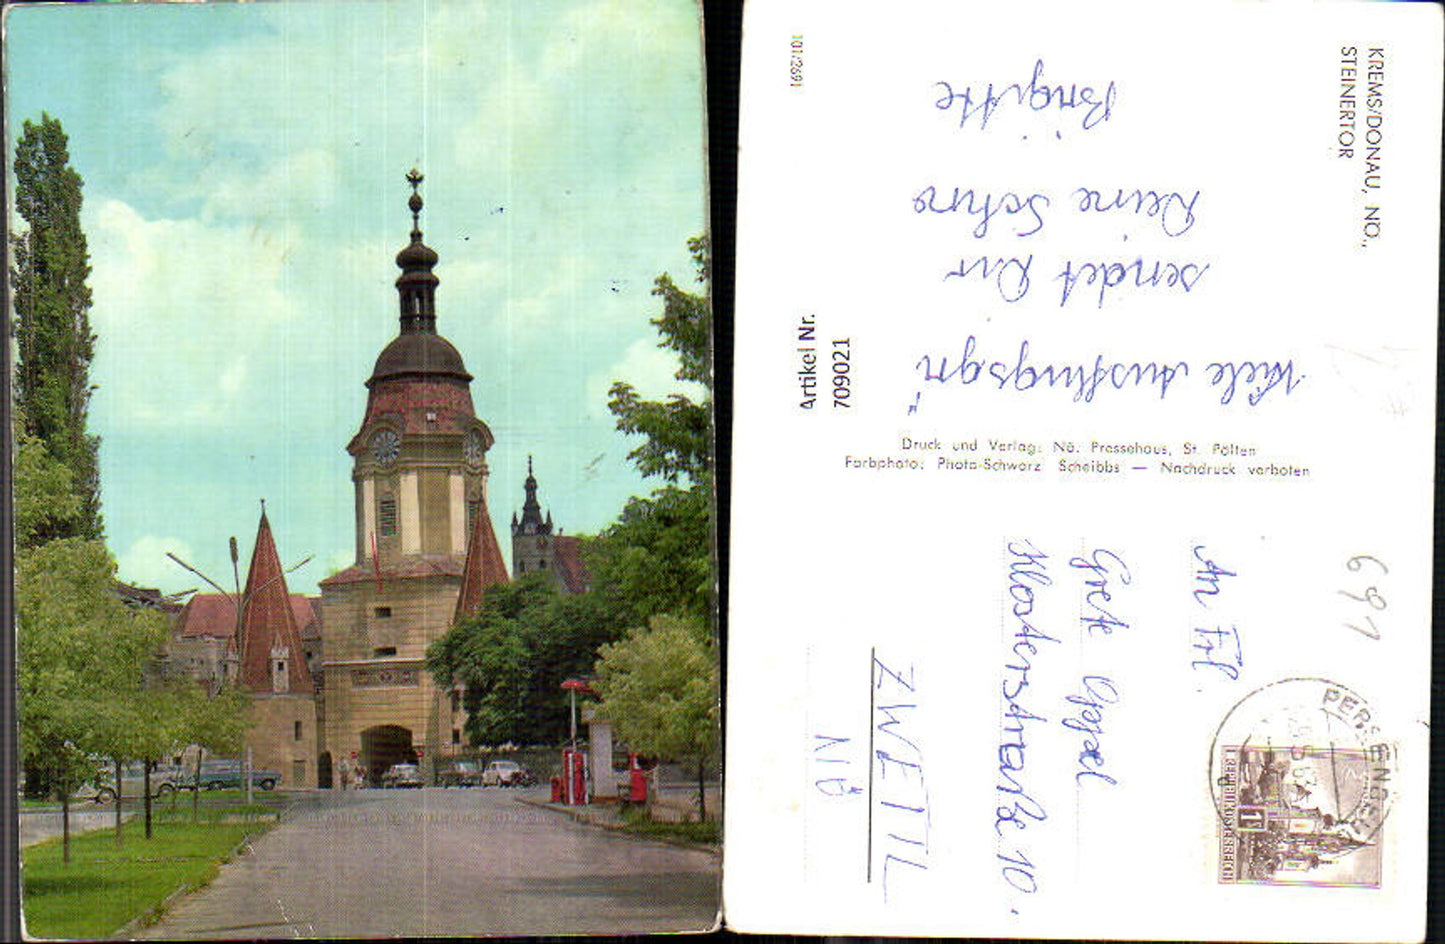 KREMS/DONAU, NÖ.,
STEINERTOR
101/2691
Artikel Nr.
709021
Viele Ausflugsgr.
sendet Dir
Deine Schw.
Brigitte
Druck und Verlag: Nö. Pressehaus, St. Pölten
Farbphoto: Photo-Schwarz Scheibbs — Nachdruck verboten
691
PERSENBEUG
1S
REPUBLIK ÖSTERREICH
An Frl.
Grete Oppel
Klosterstraße 10.
ZWETTL
NÖ